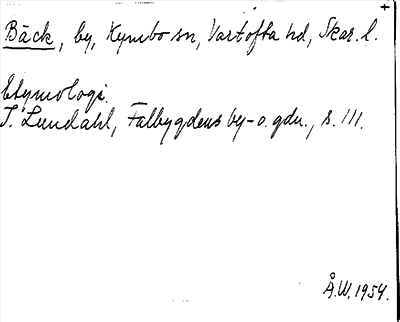 Bäck, by, Kymbo sn, Vartofta hd, Skar. l.
Etymologi.
I. Lundahl, Falbygdens by- o. gdn., s. 111.
Å.W. 1954.